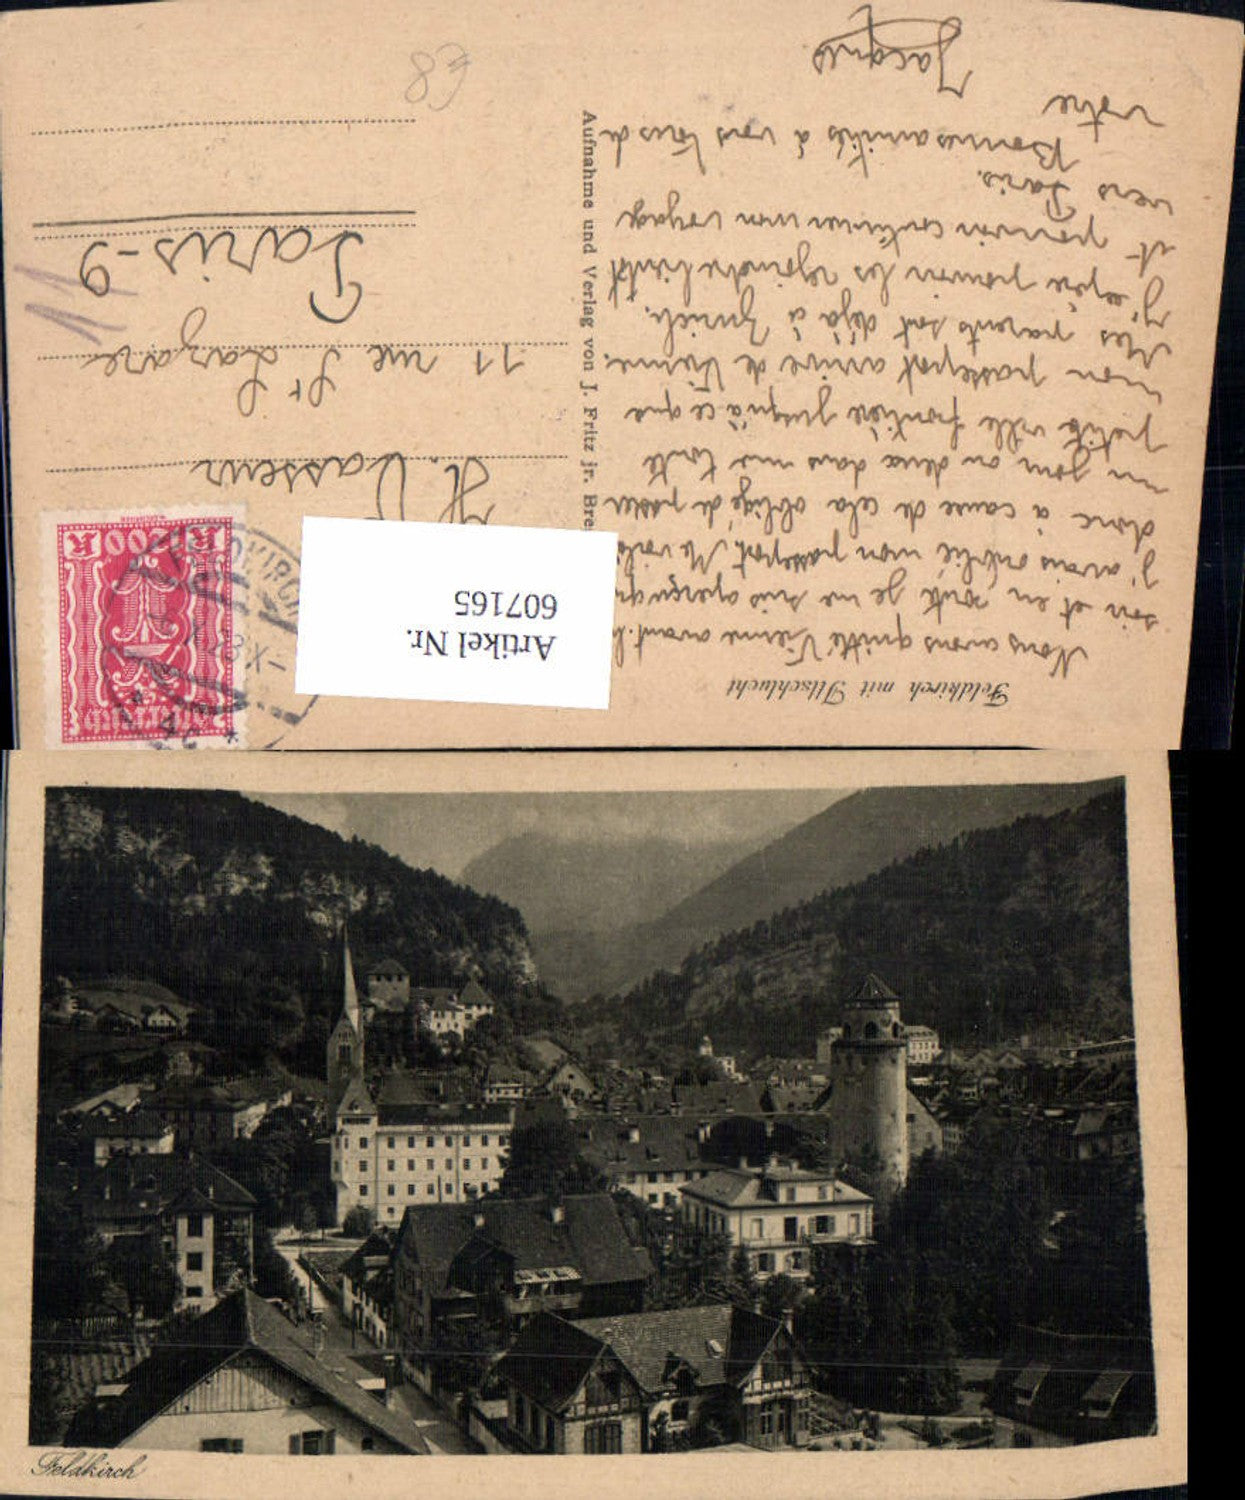 Feldkirch mit Illschlucht
Nous avons quitté Vienne avant-h
soir et en route je me suis aperçu qu
j'avais oublié mon passeport. Me voilà
donc à cause de cela obligé de passer
un jour ou deux dans une triste
petite ville frontière jusqu'à ce que
mon passeport arrive de Vienne.
Mes parents sont déjà à Zurich.
J'espère pouvoir les rejoindre bientôt
et pouvoir continuer mon voyage
vers Paris.
Bonnes amitiés à vous tous de
votre
Jacques
Aufnahme und Verlag von J. Fritz jr. Bre
Artikel Nr.
607165
H. Vasseur
11 rue St Lazare
Paris-9
11
83
K 200 K
FELDKIRCH
* 4c *
Feldkirch